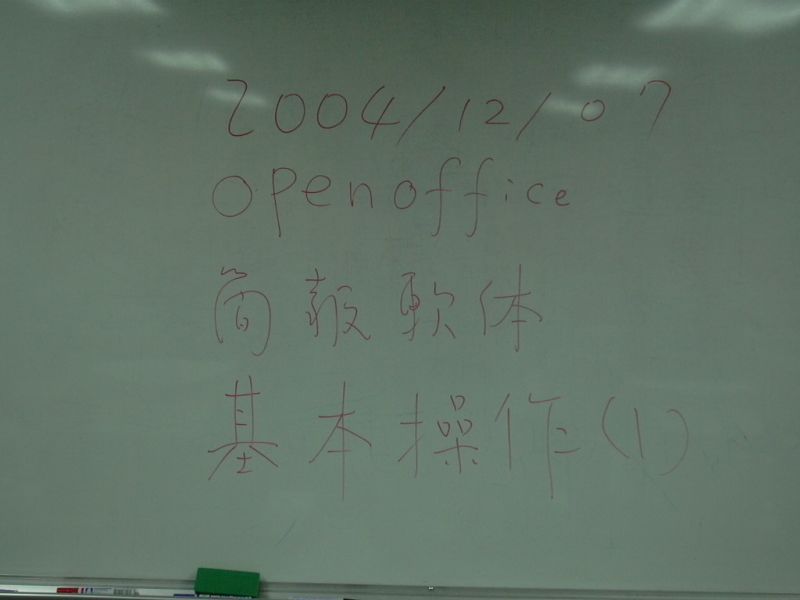 2004/12/07
openoffice
简報軟体
基本操作(1)